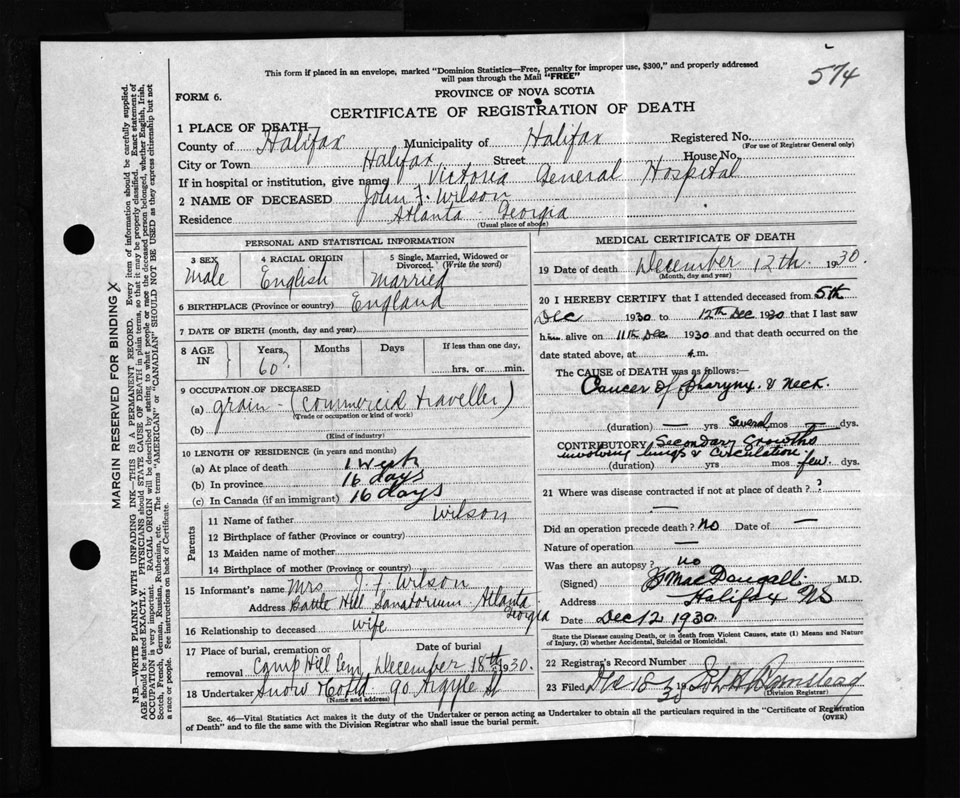 574
This form if placed in an envelope, marked "Dominion Statistics—Free, penalty for improper use, $300," and properly addressed
will pass through the Mail "FREE"
FORM 6.
PROVINCE OF NOVA SCOTIA
CERTIFICATE OF REGISTRATION OF DEATH
1 PLACE OF DEATH
County of Halifax Municipality of Halifax Registered No.
(For use of Registrar General only)
City or Town Halifax Street House No.
If in hospital or institution, give name Victoria General Hospital
2 NAME OF DECEASED John F. Wilson
Residence Atlanta Georgia
(Usual place of abode)
PERSONAL AND STATISTICAL INFORMATION
3 SEX 4 RACIAL ORIGIN 5 Single, Married, Widowed or Divorced. (Write the word)
Male English Married
6 BIRTHPLACE (Province or country) England
7 DATE OF BIRTH (month, day and year)
8 AGE IN Years Months Days If less than one day,
60? hrs. or min.
9 OCCUPATION OF DECEASED
(a) grain - (commercial traveller)
(Trade or occupation or kind of work)
(b)
(Kind of industry)
10 LENGTH OF RESIDENCE (in years and months)
(a) At place of death 1 week
(b) In province 16 days
(c) In Canada (if an immigrant) 16 days
Parents
11 Name of father Wilson
12 Birthplace of father (Province or country)
13 Maiden name of mother
14 Birthplace of mother (Province or country)
15 Informant's name Mrs J. F. Wilson
Address Battle Hill Sanatorium Atlanta Georgia
16 Relationship to deceased wife
17 Place of burial, cremation or removal Date of burial
Camp Hill Cem. December 18th 1930.
18 Undertaker Snow 90 Argyle St
(Name and address)
MEDICAL CERTIFICATE OF DEATH
19 Date of death December 12th. 1930.
(Month, day and year)
20 I HEREBY CERTIFY that I attended deceased from 5th
Dec 1930 to 12th Dec 1930 that I last saw
him alive on 11th Dec 1930 and that death occurred on
date stated above, at m.
The CAUSE OF DEATH was as follows:—
Cancer of Pharynx & neck.
(duration) — yrs Several mos — dys.
CONTRIBUTORY Secondary Growths
involving lungs & Circulation.
(duration) yrs mos few dys.
21 Where was disease contracted if not at place of death? ?
—
Did an operation precede death? no Date of —
Nature of operation —
Was there an autopsy? no
(Signed) MacDougall M.D.
Address Halifax NS
Date Dec 12 1930.
State the Disease causing Death, or in death from Violent Causes, state (1) Means and Nature
of Injury, (2) whether Accidental, Suicidal or Homicidal.
22 Registrar's Record Number
23 Filed Dec 18 1930
(Division Registrar)
Sec. 46—Vital Statistics Act makes it the duty of the Undertaker or person acting as Undertaker to obtain all the particulars required in the "Certificate of Registration
of Death" and to file the same with the Division Registrar who shall issue the burial permit.
(OVER)
MARGIN RESERVED FOR BINDING X
N.B.—WRITE PLAINLY WITH UNFADING INK—THIS IS A PERMANENT RECORD. Every item of information should be carefully supplied.
AGE should be stated EXACTLY. PHYSICIANS should STATE CAUSE OF DEATH in plain terms, so that it may be properly classified. Exact statement of
OCCUPATION is very important. RACIAL ORIGIN will be described by stating to what people or race the deceased person belonged, whether English, Irish,
Scotch, French, German, Russian, Ruthenian, etc. The terms "AMERICAN" or "CANADIAN" SHOULD NOT BE USED as they express citizenship but not
a race or people. See instructions on back of Certificate.